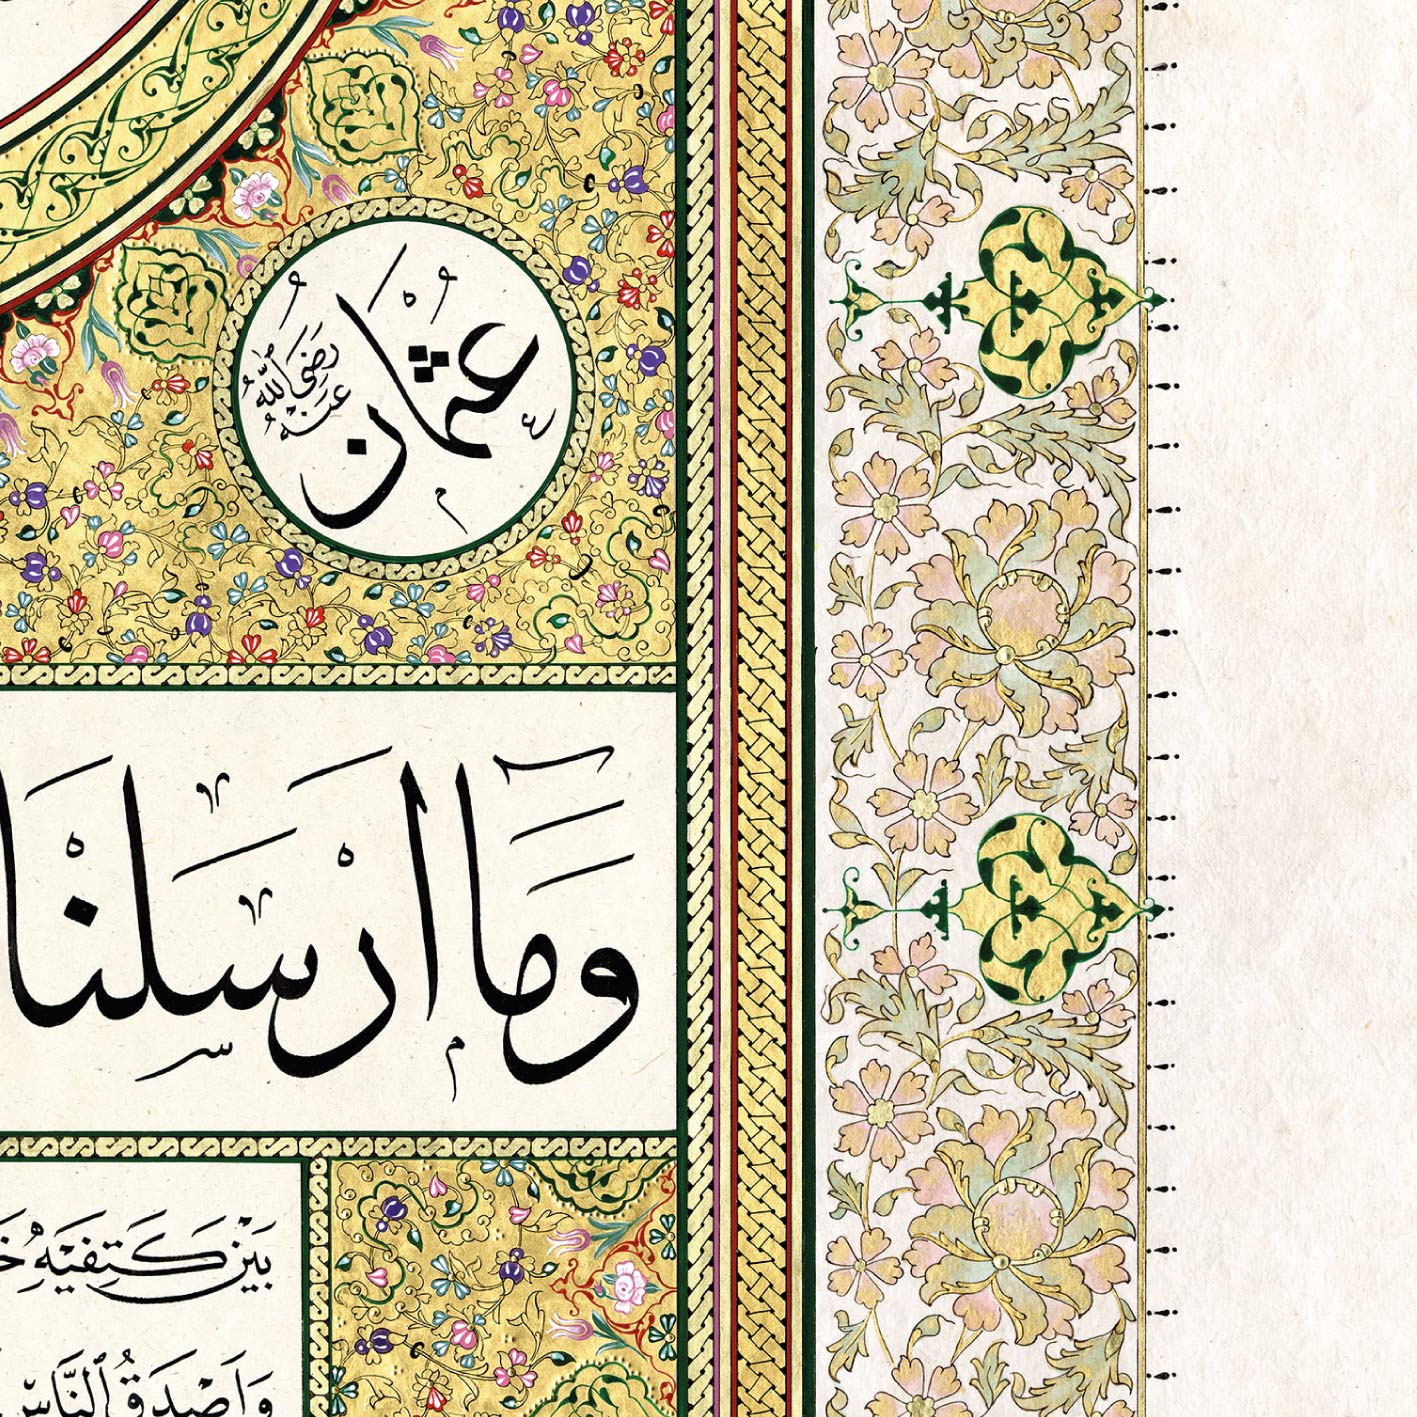 عُثْمَانُ
رَضِيَ اللّٰهُ
عَنْهُ
وَمَٓا اَرْسَلْنَا
بَيْنَ كَتِفَيْهِ
وَاَصْدَقُ النَّاسِ